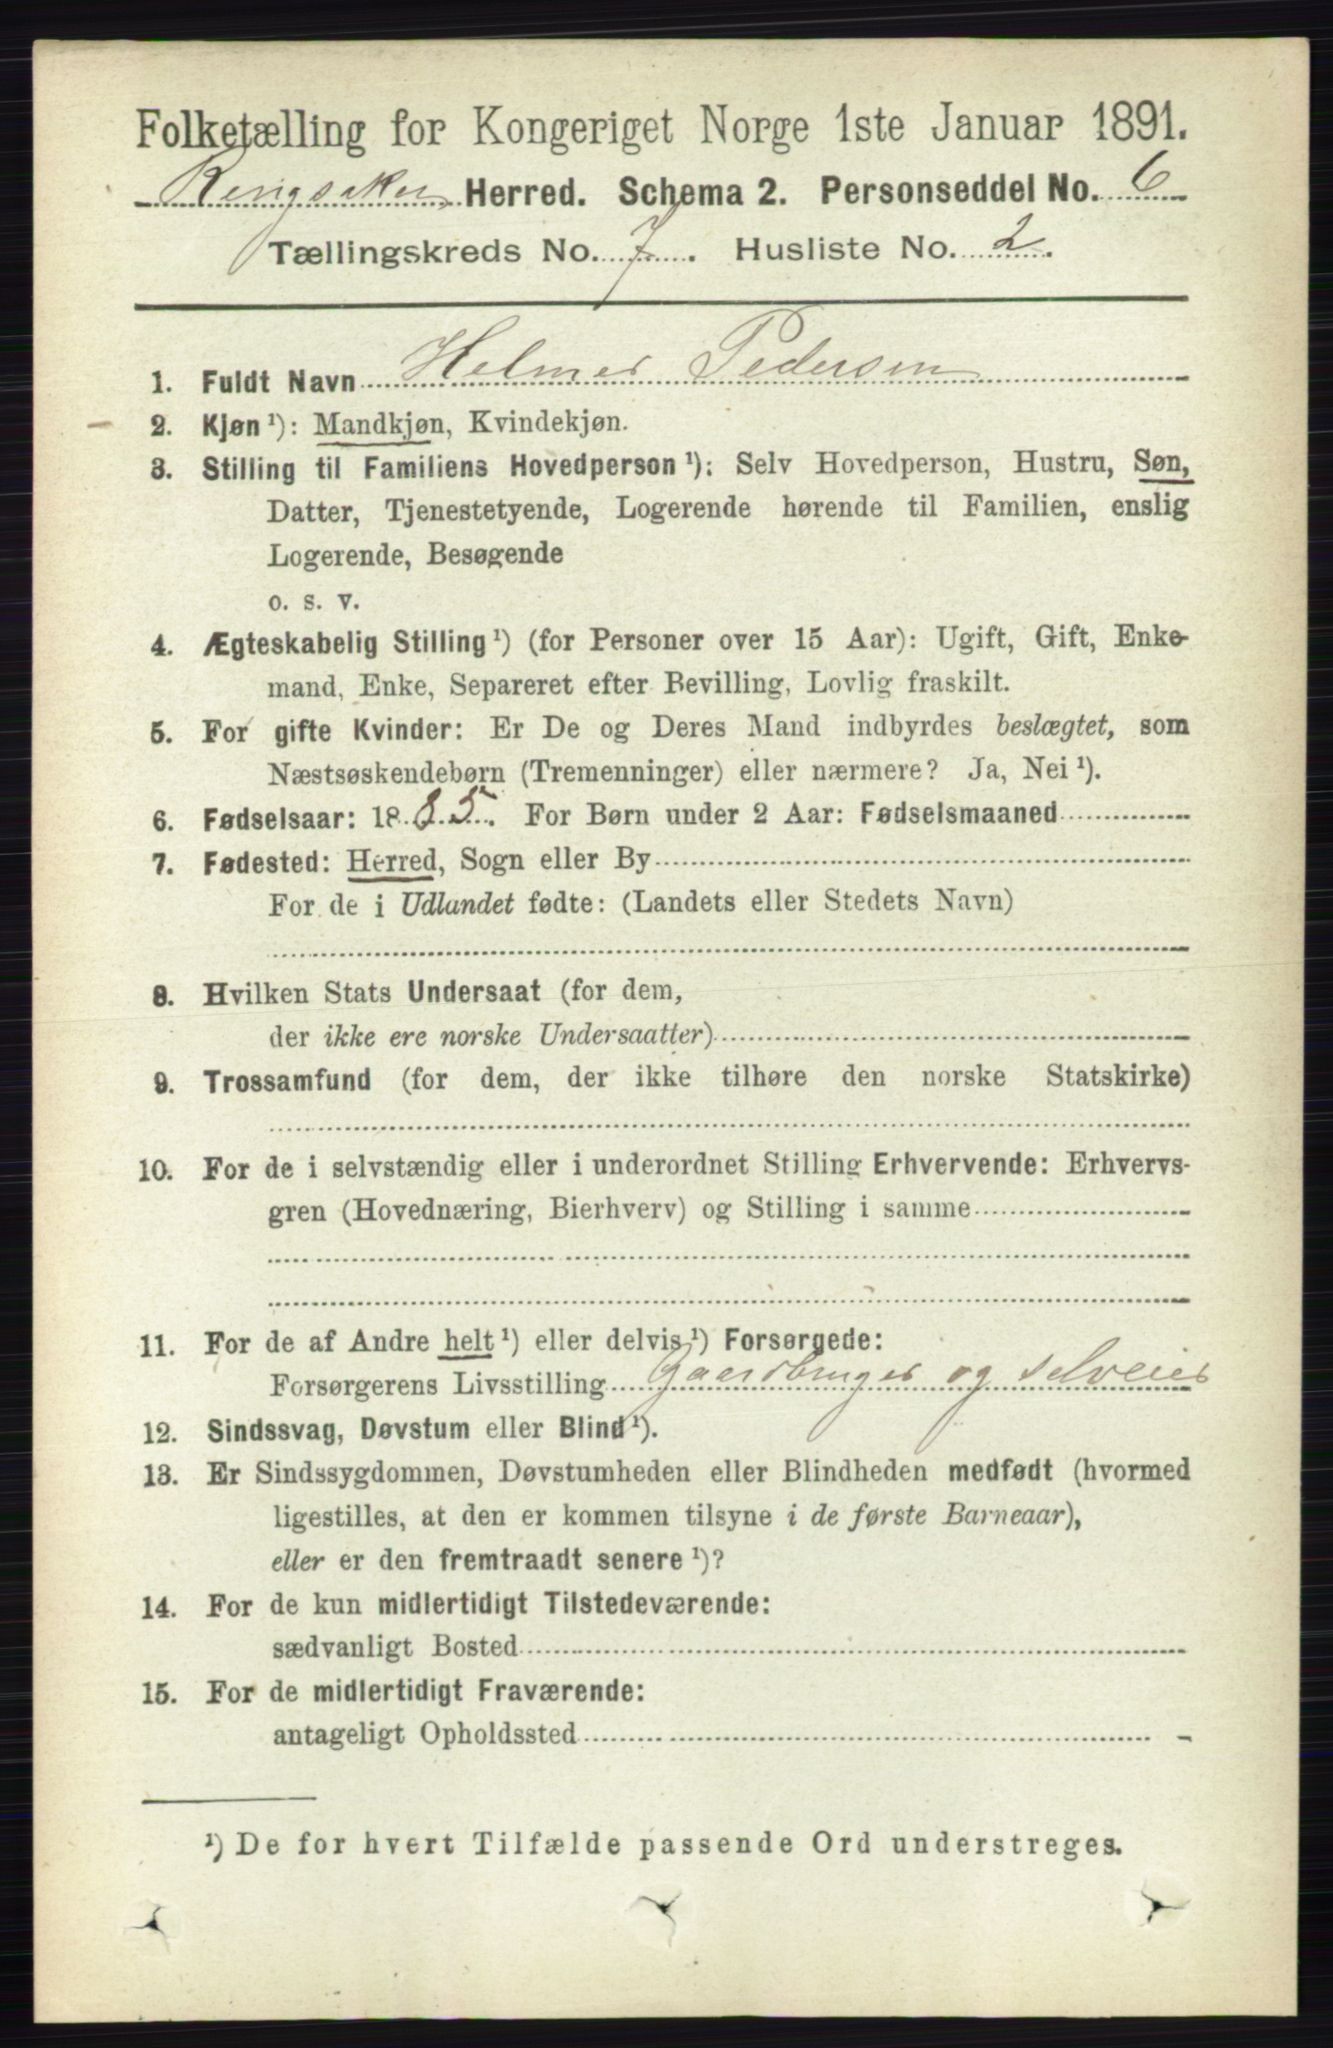 Folketælling for Kongeriget Norge 1ste Januar 1891.
Ringsaker Herred. Schema 2. Personseddel No. 6
Tællingskreds No. 7. Husliste No. 2.
1. Fuldt Navn Helmer Pedersen
2. Kjøn ¹): Mandkjøn, Kvindekjøn.
3. Stilling til Familiens Hovedperson ¹): Selv Hovedperson, Hustru, Søn,
Datter, Tjenestetyende, Logerende hørende til Familien, enslig
Logerende, Besøgende
o. s. v.
4. Ægteskabelig Stilling ¹) (for Personer over 15 Aar): Ugift, Gift, Enke-
mand, Enke, Separeret efter Bevilling, Lovlig fraskilt.
5. For gifte Kvinder: Er De og Deres Mand indbyrdes beslægtet, som
Næstsøskendebørn (Tremenninger) eller nærmere? Ja, Nei ¹).
6. Fødselsaar: 1885. For Børn under 2 Aar: Fødselsmaaned
7. Fødested: Herred, Sogn eller By
For de i Udlandet fødte: (Landets eller Stedets Navn)
8. Hvilken Stats Undersaat (for dem,
der ikke ere norske Undersaatter)
9. Trossamfund (for dem, der ikke tilhøre den norske Statskirke)
10. For de i selvstændig eller i underordnet Stilling Erhvervende: Erhvervs-
gren (Hovednæring, Bierhverv) og Stilling i samme
11. For de af Andre helt ¹) eller delvis ¹) Forsørgede:
Forsørgerens Livsstilling Gaardbruger og selveier
12. Sindssvag, Døvstum eller Blind ¹).
13. Er Sindssygdommen, Døvstumheden eller Blindheden medfødt (hvormed
ligestilles, at den er kommen tilsyne i de første Barneaar),
eller er den fremtraadt senere ¹)?
14. For de kun midlertidigt Tilstedeværende:
sædvanligt Bosted
15. For de midlertidigt Fraværende:
antageligt Opholdssted
¹) De for hvert Tilfælde passende Ord understreges.